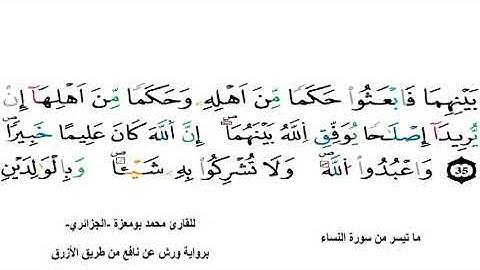 بَيْنِهِمَا فَابْعَثُوا۟ حَكَمًا مِّنَ اَهْلِهِۦ وَحَكَمًا مِّنَ اَهْلِهَآ إِنْ
يُّرِيدَآ إِصْلَٰحًا يُوَفِّقِ اِللَّهُ بَيْنَهُمَآ إِنَّ اَ۬للَّهَ كَانَ عَلِيمًا خَبِيرًا
35 وَاعْبُدُوا۟ اُ۬للَّهَ وَلَا تُشْرِكُوا۟ بِهِۦ شَيْـًٔا وَبِالْوَٰلِدَيْنِ
ما تيسر من سورة النساء
للقارئ محمد بومعزة -الجزائري-
برواية ورش عن نافع من طريق الأزرق